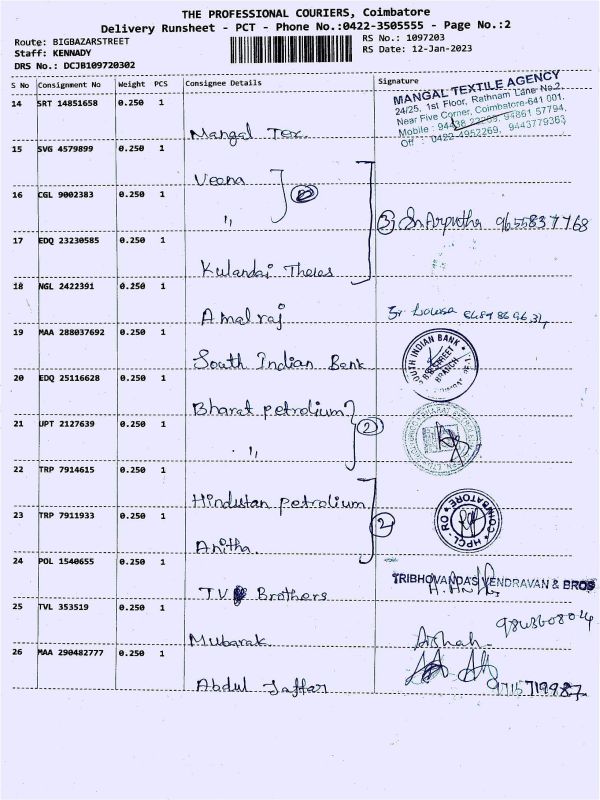 THE PROFESSIONAL COURIERS, Coimbatore
Delivery Runsheet - PCT - Phone No.:0422-3505555 - Page No.:2
Route: BIGBAZARSTREET
RS No.: 1097203
Staff: KENNADY
RS Date: 12-Jan-2023
DRS No.: DCJB109720302
S No Consignment No Weight PCS Consignee Details Signature
14 SRT 14851658 0.250 1
Mangal Tex
MANGAL TEXTILE AGENCY
24/25, 1st Floor, Rathnam Lane No.2,
Near Five Corner, Coimbatore-641 001.
Mobile : 94861 57794,
Off : 0422 4952269, 9443779363
15 SVG 4579899 0.250 1
Veena
16 CGL 9002383 0.250 1
"
2
3 9655837768
17 EDQ 23230585 0.250 1
Kulandai
18 NGL 2422391 0.250 1
Amalraj
19 MAA 288037692 0.250 1
South Indian Bank
SOUTH INDIAN BANK
BRANCH
20 EDQ 25116628 0.250 1
Bharat petrolium
21 UPT 2127639 0.250 1
"
2
22 TRP 7914615 0.250 1
Hindustan petrolium
HPCL - RO COIMBATORE
23 TRP 7911933 0.250 1
Anitha
2
24 POL 1540655 0.250 1
TV Brothers
TRIBHOVANDAS VENDRAVAN & BROS
25 TVL 353519 0.250 1
Mubarak
26 MAA 290482777 0.250 1
Abdul Jaffar
9715719987